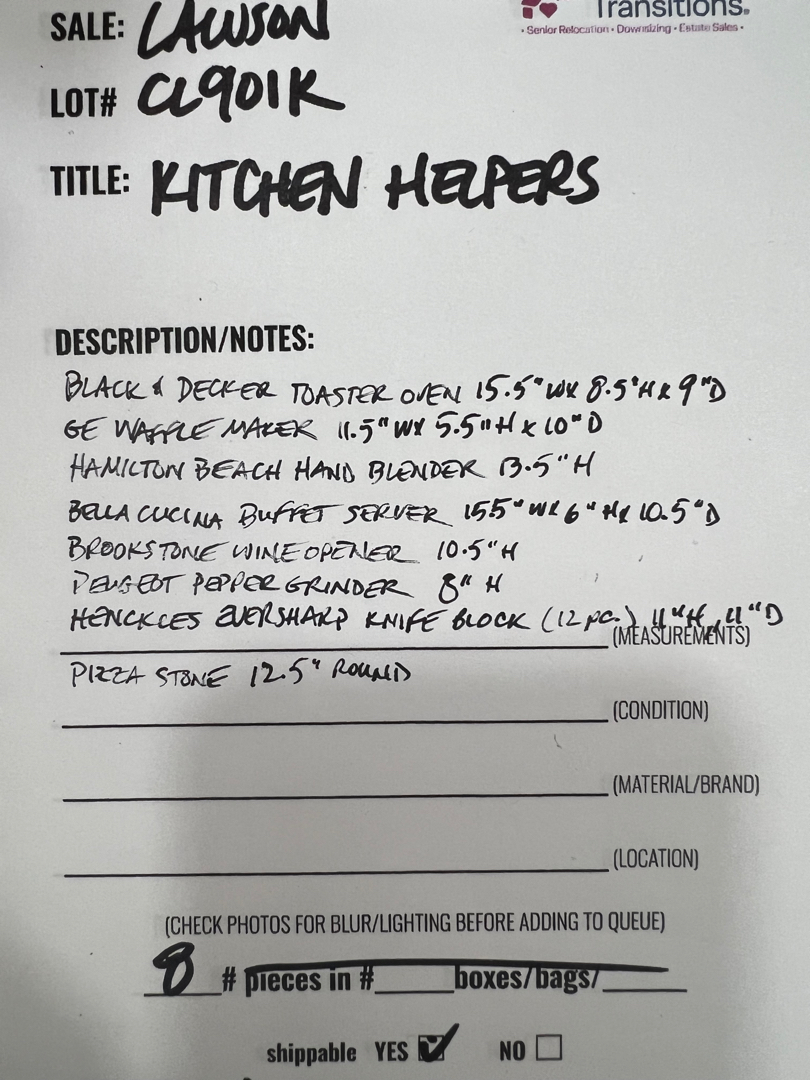 Transitions®
• Senior Relocation • Downsizing • Estate Sales •
SALE: LAWSON
LOT# CL901K
TITLE: KITCHEN HELPERS
DESCRIPTION/NOTES:
BLACK & DECKER TOASTER OVEN 15.5"W X 8.5"H X 9"D
GE WAFFLE MAKER 11.5"W X 5.5"H X 10"D
HAMILTON BEACH HAND BLENDER 13.5"H
BELLA CUCINA BUFFET SERVER 15.5"W X 6"H X 10.5"D
BROOKSTONE WINE OPENER 10.5"H
PEUGEOT PEPPER GRINDER 8"H
HENCKLES EVERSHARP KNIFE BLOCK (12 pc.) 11"H, 11"D
(MEASUREMENTS)
PIZZA STONE 12.5" ROUND
(CONDITION)
(MATERIAL/BRAND)
(LOCATION)
(CHECK PHOTOS FOR BLUR/LIGHTING BEFORE ADDING TO QUEUE)
8 # pieces in #_____boxes/bags/_____
shippable YES ☑ NO ☐